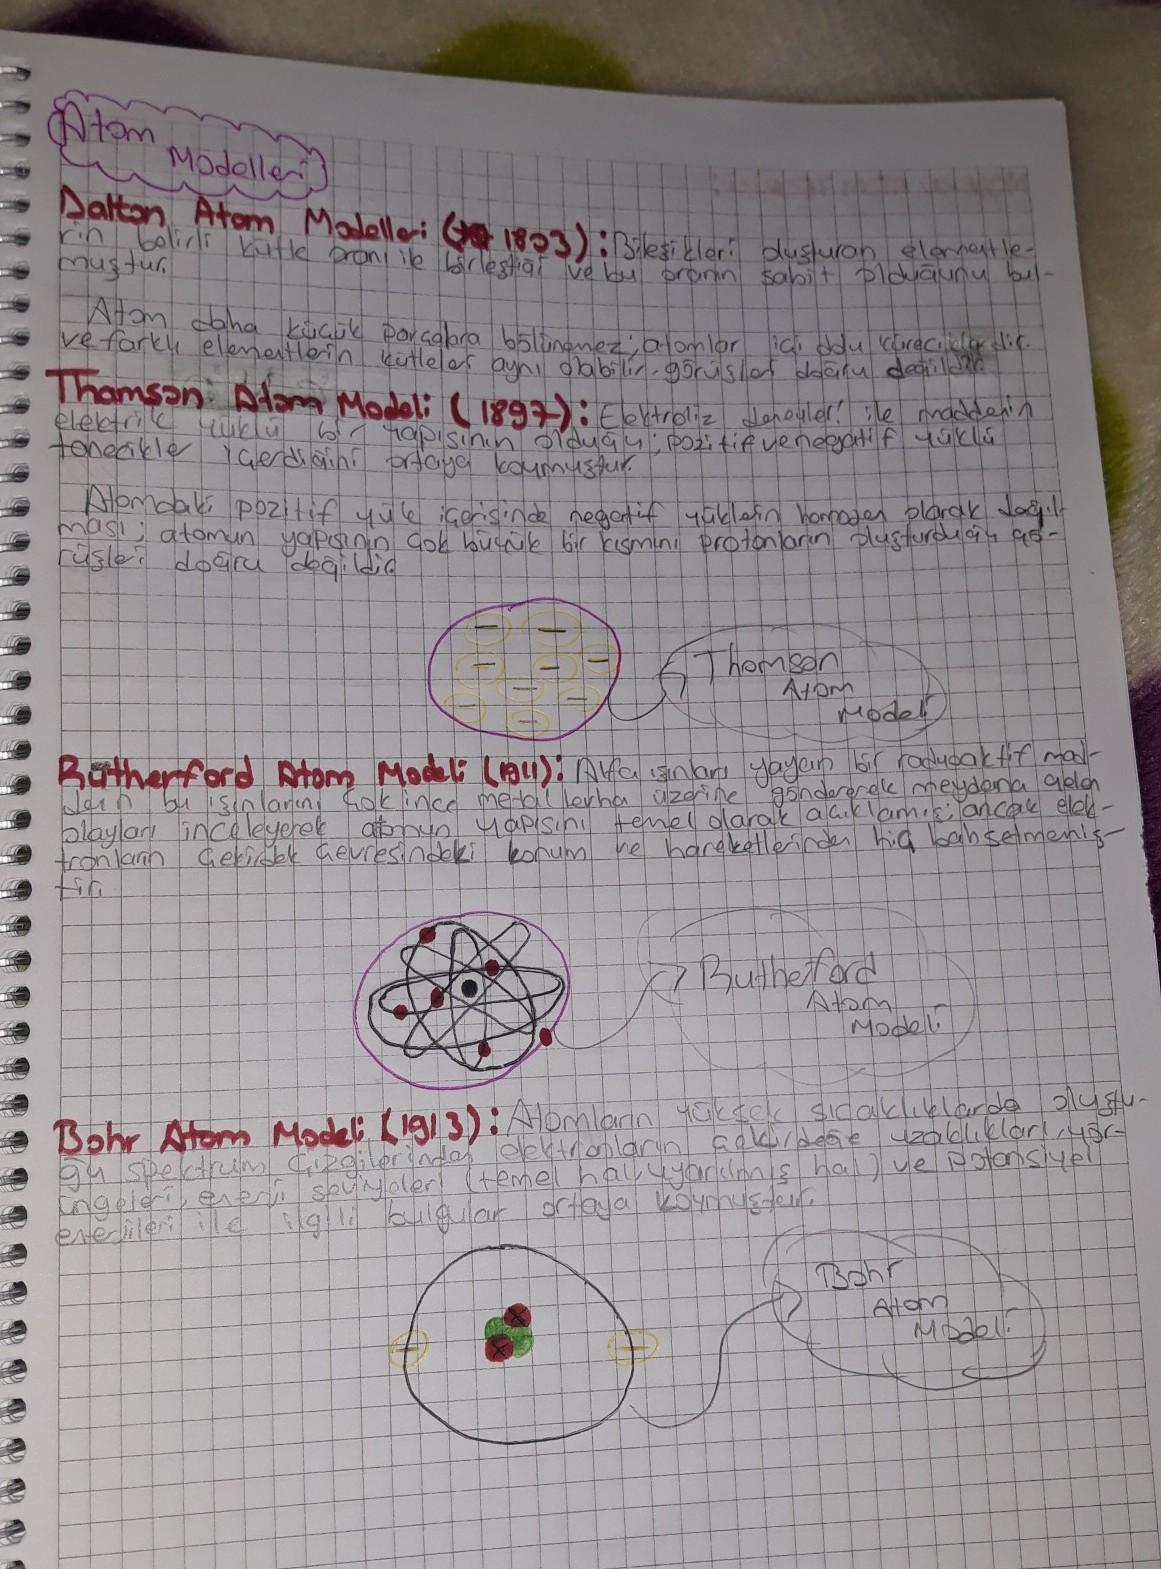 Atom
Modelleri
Dalton Atom Modelleri (1803): Bileşikleri oluşturan elementle-
rin belirli kütle oranı ile birleştiği ve bu oranın sabit olduğunu bul-
muştur.
Atom daha küçük parçalara bölünemez; atomlar içi dolu küreciklerdir.
ve farklı elementlerin kütleler aynı olabilir. görüşler doğru değildir
Thomson Atom Modeli (1897): Elektroliz deneyler! ile maddenin
elektrik yüklü bir yapısının olduğu; pozitif ve negatif yüklü
tanecikle içerdiğini ortaya koymuştur.
Atomdaki pozitif yük içerisinde negatif yüklerin homogen olarak dağıl-
ması; atomun yapısının çok büyük bir kısmını protonların oluşturduğu gö-
rüşleri doğru değildir
Thomson
Atom
Modeli
Rutherford Atom Modeli (1911): Alfa ışınları yayan bir radyoaktif mad-
denin bu ışınlarını çok ince metal levha üzerine göndererek meydana gelen
olayları inceleyerek atomun yapısını temel olarak açıklamış; ancak elek-
tronların çekirdek çevresindeki konum ve hareketlerinden hiç bahsetmemiş-
tir.
Rutherford
Atom
Modeli
Bohr Atom Modeli (1913): Atomların yüksek sıcaklıklarda oluştu-
ğu spektrum çizgilerinden elektronların çekirdeğe uzaklıkları, yör-
üngeleri, enerji seviyeleri (temel hal, uyarılmış hal) ve potansiyel
enerjileri ile ilgili bulgular ortaya koymuştur.
Bohr
Atom
Modeli